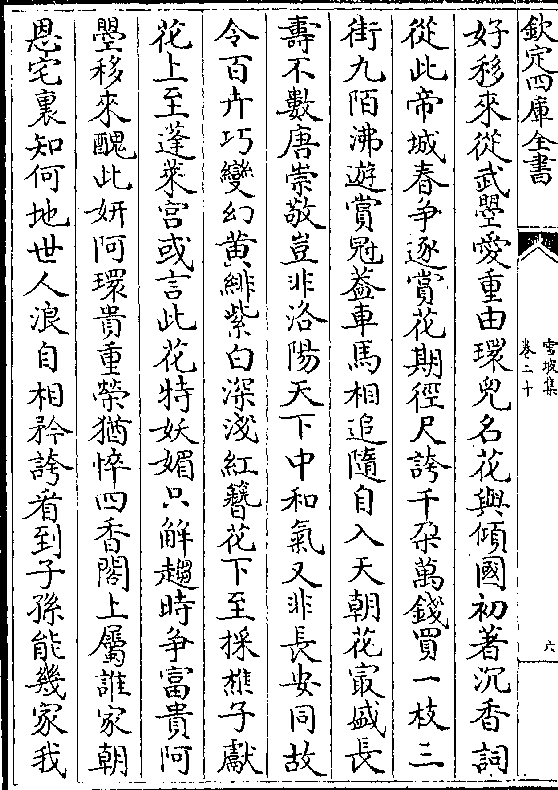 欽定四庫全書
雪坡集
卷二十
六
好移來從武曌愛重由環兒名花與傾國初著沉香詞
從此帝城春爭逐賞花期徑尺誇千朶萬錢買一枝三
街九陌沸遊賞冠葢車馬相追隨自入天朝花㝡盛長
壽不數唐崇敬豈非洛陽天下中和氣又非長安同故
令百卉巧變幻黄緋紫白深淺紅簪花下至採樵子獻
花上至蓬萊宫或言此花特妖媚只解趨時争富貴阿
曌移來醜此妍阿環貴重榮猶悴四香閣上屬誰家朝
恩宅裏知何地世人浪自相矜誇看到子孫能幾家我